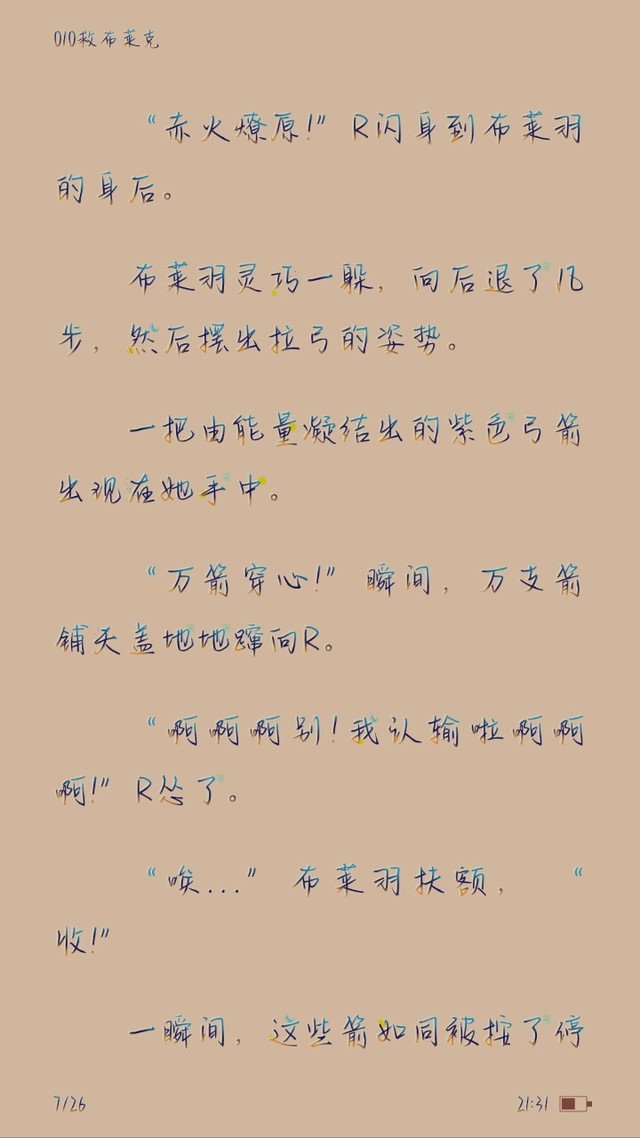 010救布莱克
“赤火燎原!” R闪身到布莱羽
的身后。
布莱羽灵巧一躲，向后退了几
步，然后摆出拉弓的姿势。
一把由能量凝结出的紫色弓箭
出现在她手中。
“万箭穿心!” 瞬间，万支箭
铺天盖地地蹿向R。
“啊啊啊别!我认输啦啊啊
啊!” R怂了。
“唉...” 布莱羽扶额， “
收!”
一瞬间，这些箭如同被按了停
7/26 21:31